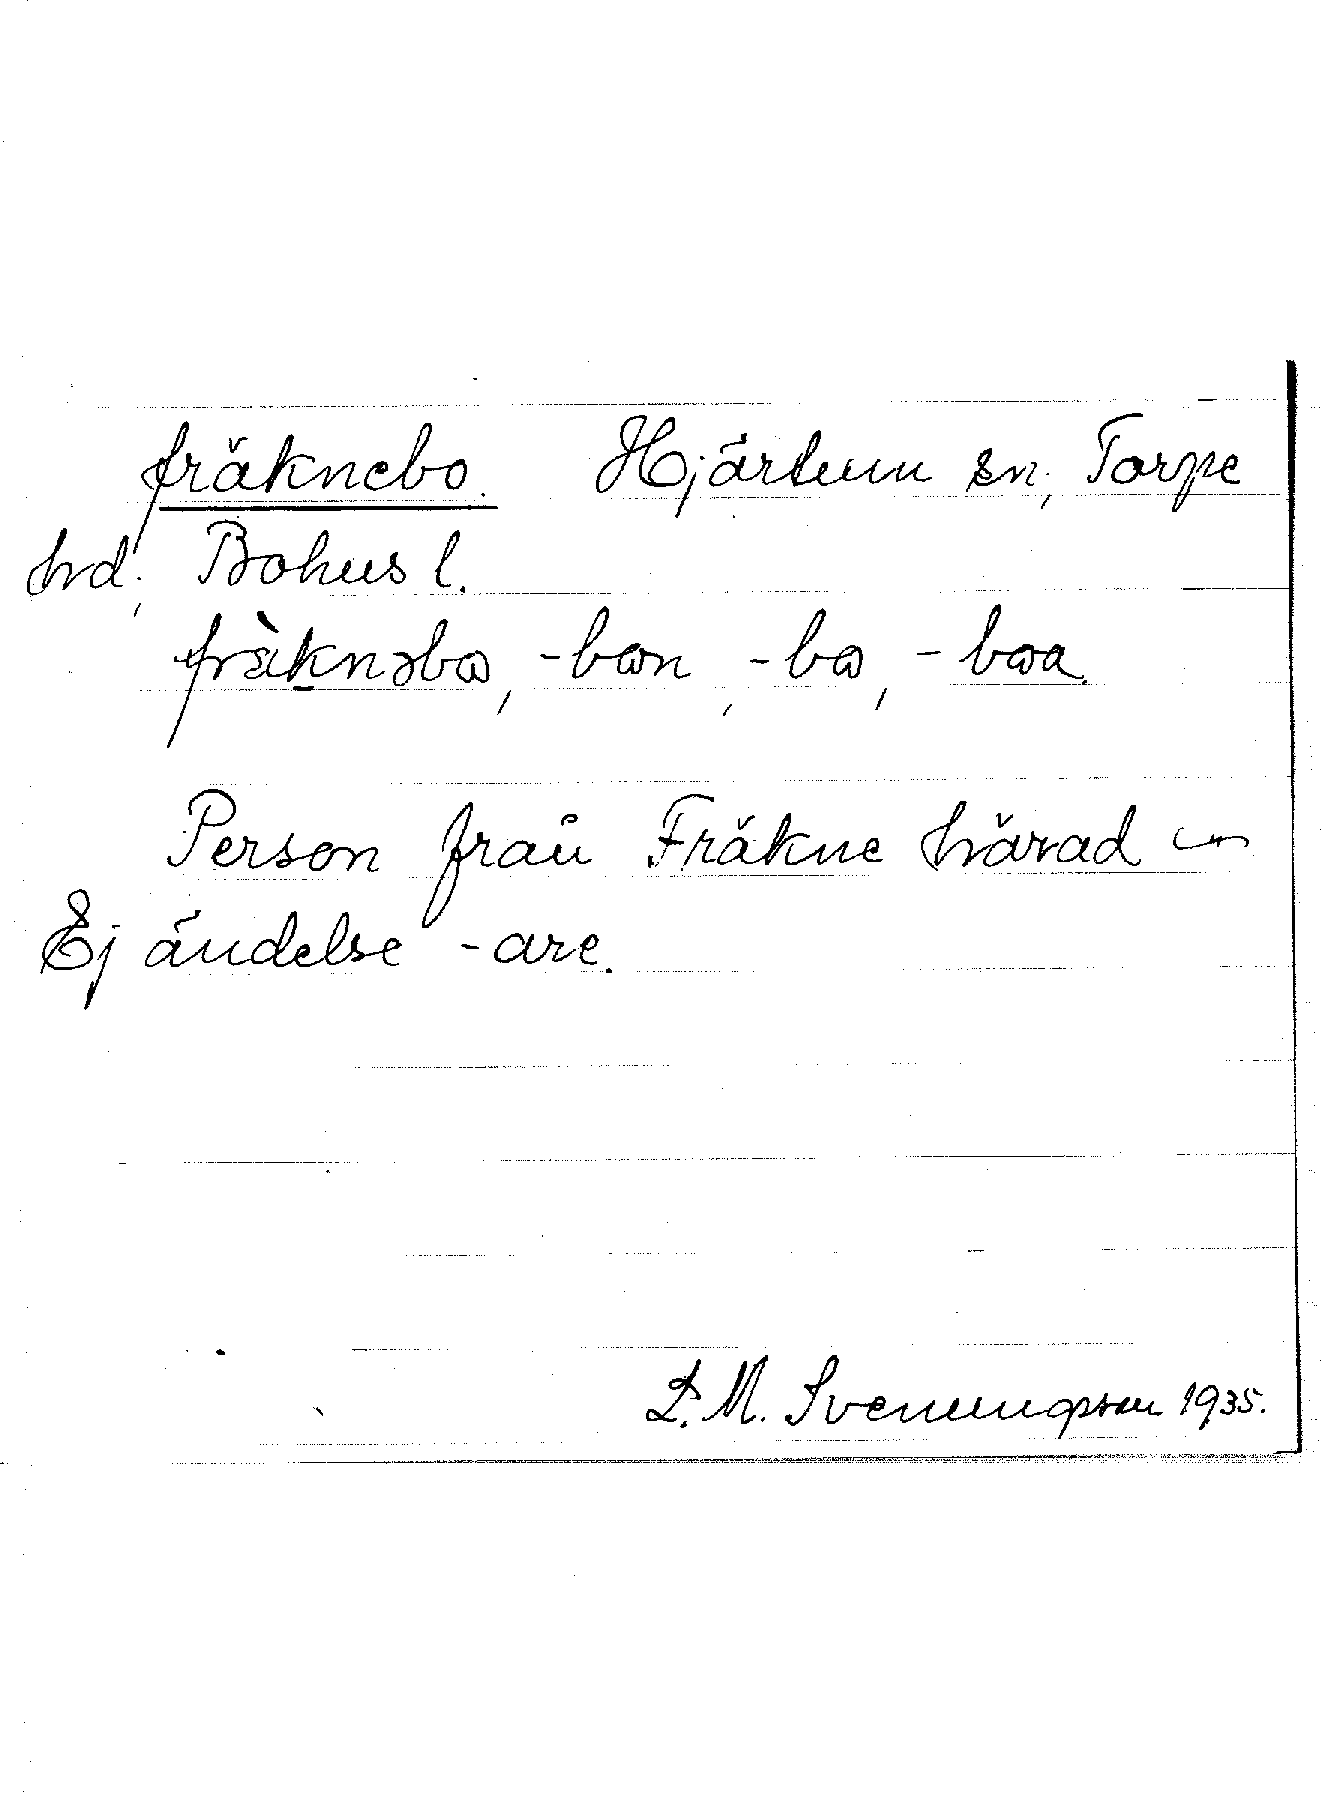 fräknebo. Hjärtum sn, Torpe
hrd, Bohusl.
fràknəbω, -bωn, -bω, -bωa.
Person från Fräkne härad ~
Ej ändelse -are.
D. M. Svenungsson 1935.